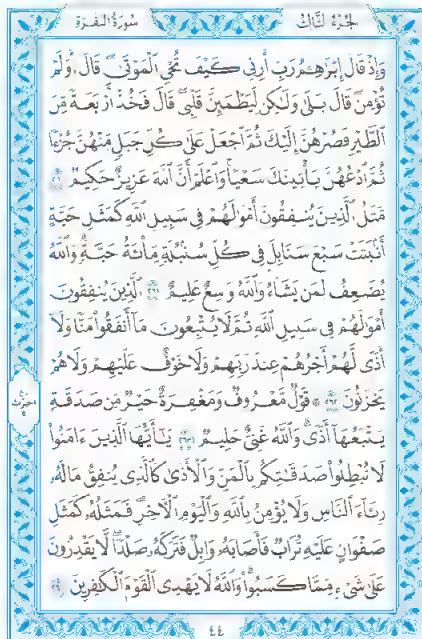 سُورَةُ البَقَرَةِ
الجُزءُ الثَّالِثُ
وَإِذْ قَالَ إِبْرَٰهِـۧمُ رَبِّ أَرِنِي كَيْفَ تُحْيِ ٱلْمَوْتَىٰ قَالَ أَوَلَمْ
تُؤْمِن قَالَ بَلَىٰ وَلَٰكِن لِّيَطْمَئِنَّ قَلْبِي قَالَ فَخُذْ أَرْبَعَةً مِّنَ
ٱلطَّيْرِ فَصُرْهُنَّ إِلَيْكَ ثُمَّ ٱجْعَلْ عَلَىٰ كُلِّ جَبَلٍ مِّنْهُنَّ جُزْءًا
ثُمَّ ٱدْعُهُنَّ يَأْتِينَكَ سَعْيًا وَٱعْلَمْ أَنَّ ٱللَّهَ عَزِيزٌ حَكِيمٌ
مَّثَلُ ٱلَّذِينَ يُنفِقُونَ أَمْوَٰلَهُمْ فِي سَبِيلِ ٱللَّهِ كَمَثَلِ حَبَّةٍ
أَنۢبَتَتْ سَبْعَ سَنَابِلَ فِي كُلِّ سُنۢبُلَةٍ مِّا۟ئَةُ حَبَّةٍ وَٱللَّهُ
يُضَٰعِفُ لِمَن يَشَآءُ وَٱللَّهُ وَٰسِعٌ عَلِيمٌ ٢٦١ ٱلَّذِينَ يُنفِقُونَ
أَمْوَٰلَهُمْ فِي سَبِيلِ ٱللَّهِ ثُمَّ لَا يُتْبِعُونَ مَآ أَنفَقُوا۟ مَنًّا وَلَآ
أَذًى لَّهُمْ أَجْرُهُمْ عِندَ رَبِّهِمْ وَلَا خَوْفٌ عَلَيْهِمْ وَلَا هُمْ
يَحْزَنُونَ ٢٦٢ ۞ قَوْلٌ مَّعْرُوفٌ وَمَغْفِرَةٌ خَيْرٌ مِّن صَدَقَةٍ
يَتْبَعُهَآ أَذًى وَٱللَّهُ غَنِيٌّ حَلِيمٌ ٢٦٣ يَٰٓأَيُّهَا ٱلَّذِينَ ءَامَنُوا۟
لَا تُبْطِلُوا۟ صَدَقَٰتِكُم بِٱلْمَنِّ وَٱلْأَذَىٰ كَٱلَّذِي يُنفِقُ مَالَهُۥ
رِئَآءَ ٱلنَّاسِ وَلَا يُؤْمِنُ بِٱللَّهِ وَٱلْيَوْمِ ٱلْءَاخِرِ فَمَثَلُهُۥ كَمَثَلِ
صَفْوَانٍ عَلَيْهِ تُرَابٌ فَأَصَابَهُۥ وَابِلٌ فَتَرَكَهُۥ صَلْدًا لَّا يَقْدِرُونَ
عَلَىٰ شَيْءٍ مِّمَّا كَسَبُوا۟ وَٱللَّهُ لَا يَهْدِي ٱلْقَوْمَ ٱلْكَٰفِرِينَ
٤٤